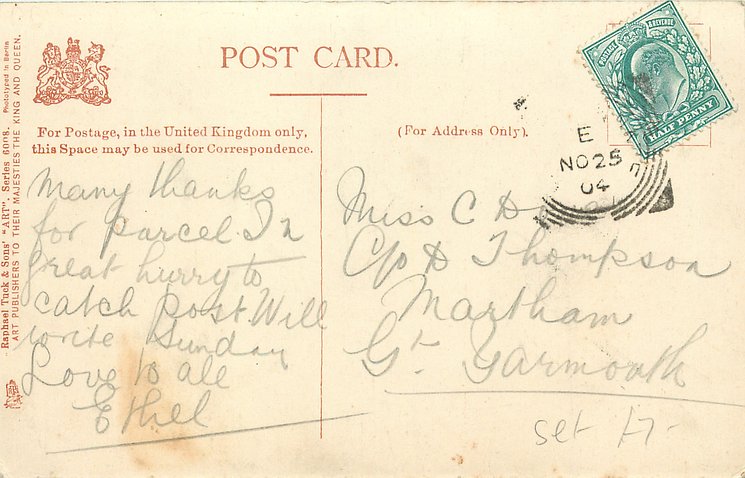 POST CARD.
POSTAGE & REVENUE
HALF PENNY
For Postage, in the United Kingdom only,
this Space may be used for Correspondence.
(For Address Only).
E
NO 25
04
Many thanks
for parcel. In
great hurry to
catch post. Will
write Sunday
Love to all
Ethel
Miss C
C/o D Thompson
Martham
Gt. Yarmouth
set
Raphael Tuck & Sons' "ART", Series 6008. Phototyped in Berlin
ART PUBLISHERS TO THEIR MAJESTIES THE KING AND QUEEN.